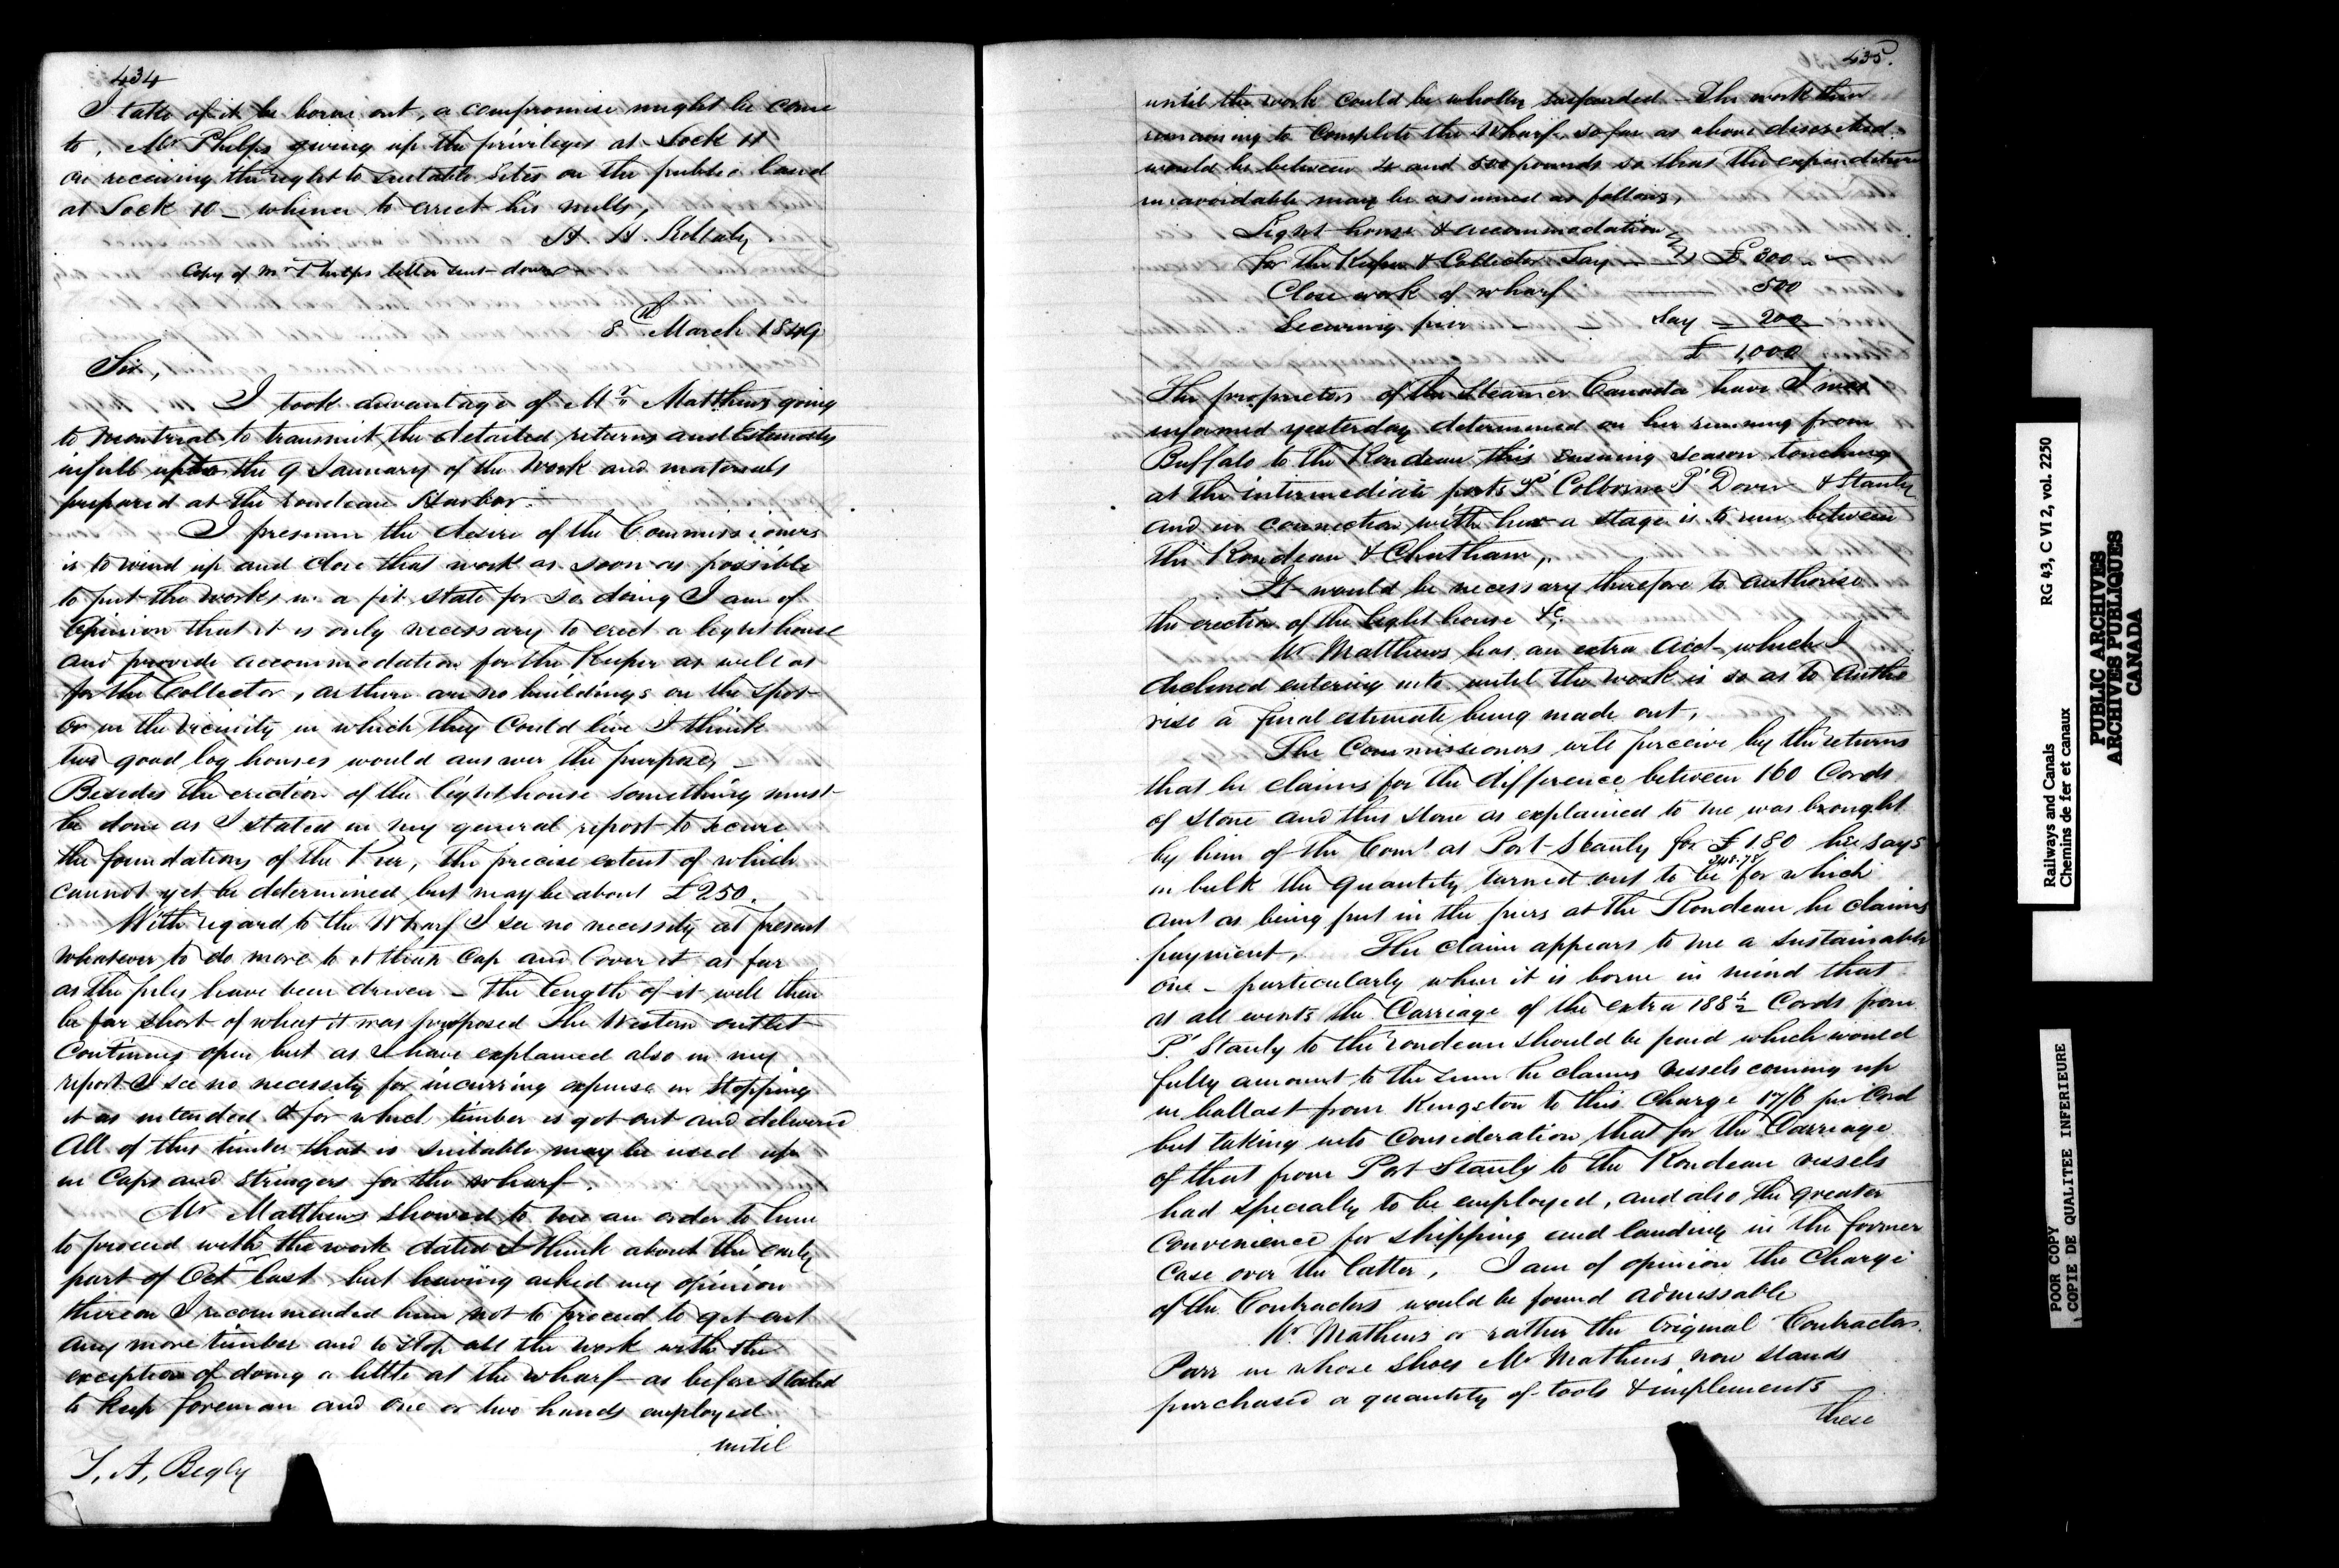 434
I take of it be borne out, a compromise might be come
to, Mr Phelps giving up the privileges at Lock 11
on receiving the right to suitable Sites on the public land
at Lock 10 _ whereon to erect his mills,
H. H. Killaly
Copy of Mr Phelps letter sent down
8th March 1849
Sir,
I took advantage of Mr Matthews going
to Montreal to transmit the detailed returns and Estimates
in full up to the 9 January of the Work and materials
prepared at the Rondeau Harbor.
I presume the desire of the Commissioners
is to wind up and close that work as soon as possible
to put the works in a fit state for so doing I am of
Opinion that it is only necessary to erect a light house
and provide accommodation for the Keeper as well as
for the Collector, as there are no buildings on the spot
or in the vicinity in which they Could live I think
two good log houses would answer the purpose, _
Besides the erection of the light house something must
be done as I stated in my general report to secure
the foundations of the Pier, the precise extent of which
cannot yet be determined but may be about £250.
With regard to the Wharf I see no necessity at present
whatever to do more to it than Cap and Cover it as far
as the piles have been driven _ The length of it will then
be far short of what it was proposed The Western outlet
Continues open but as I have explained also in my
report I see no necessity for incurring expense in Stopping
it as intended & for which timber is got out and delivered
All of this timber that is suitable may be used up
in Caps and Stringers for the wharf.
Mr Matthews showed to me an order to him
to proceed with the work dated I think about the early
part of Octr last, but having asked my opinion
thereon I recommended him not to proceed to get out
any more timber and to stop all the work with the
exception of doing a little at the wharf as before stated
to keep foreman and one or two hands employed
until
T. A. Begly
435.
until the work could be wholly suspended _ The work then
remaining to Complete the Wharf so far as above described
would be between 4 and 500 pounds so that the expenditure
unavoidable may be assumed as follows,
Light house & accommodation
for the Keeper & Collector Say £ 300 " "
Close work of wharf 500
Securing pier _ _ Say _ 200
£ 1,000
The proprietors of the Steamer Canada have I was
informed yesterday determined on her running from
Buffalo to the Rondeau this ensuing season touching
at the intermediate ports Pt Colborne Pt Dover & Stanly
and in connection with her a stage is to run between
the Rondeau & Chatham,
It would be necessary therefore to authorise
the erection of the light house &c.
Mr Matthews has an extra acct which I
declined entering into until the work is so as to autho
rise a final estimate being made out,
The Commissioners will perceive by the returns
that he claims for the difference between 160 Cords
of stone and this stone as explained to me was brought
by him of the Comrs at Port Stanly for £180 he says
in bulk the quantity turned out to be 348.78/ for which
amt as being put in the piers at the Rondeau he claims
payment, The claim appears to me a sustainable
one _ particularly when it is borne in mind that
at all events the Carriage of the extra 188½ Cords from
Pt Stanly to the Rondeau should be paid which would
fully amount to the sum he claims Vessels coming up
in ballast from Kingston to this Charge 17/6 per Cord
but taking into Consideration that for the Carriage
of that from Port Stanly to the Rondeau vessels
had specially to be employed, and also the greater
Convenience for shipping and landing in the former
Case over the latter, I am of opinion the Charge
of the Contractors would be found admissable
Mr Mathews or rather the Original Contractor
Parr in whose shoes Mr Mathews now stands
purchased a quantity of tools & implements
these
Railways and Canals RG 43, C VI 2, vol. 2250
Chemins de fer et canaux
PUBLIC ARCHIVES
ARCHIVES PUBLIQUES
CANADA
POOR COPY
COPIE DE QUALITEE INFERIEURE